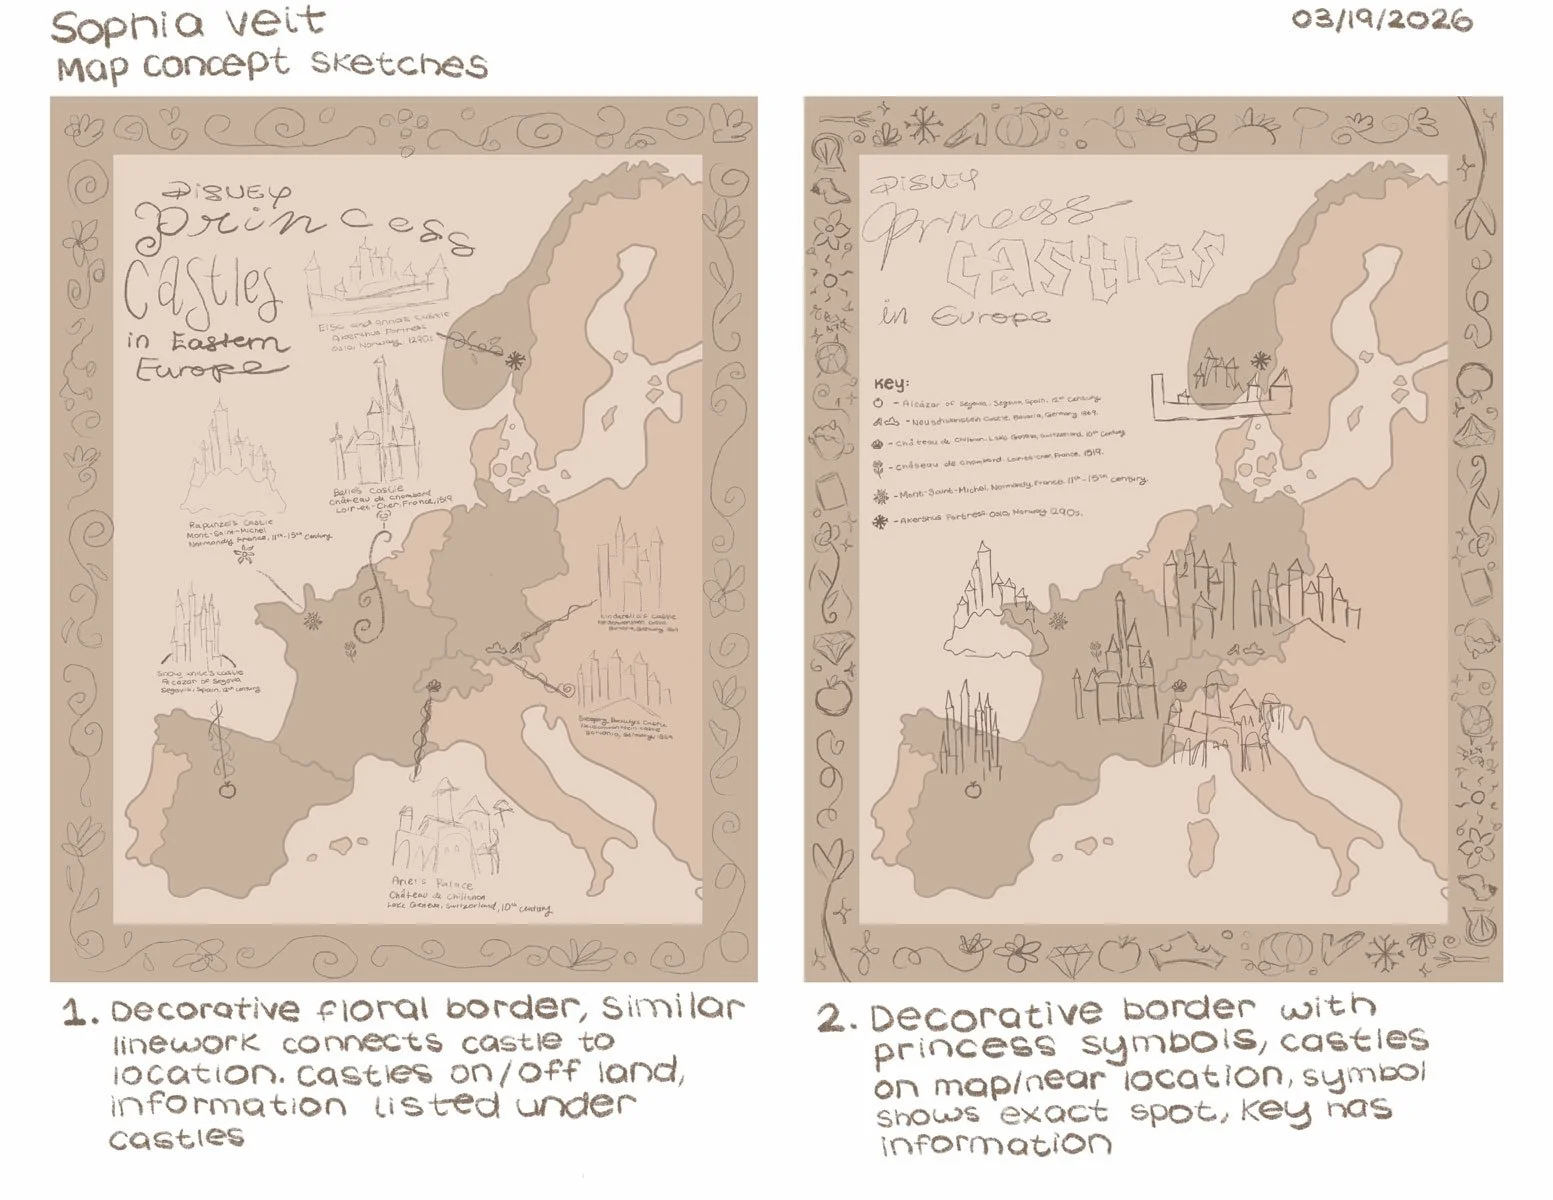 Sophia Veit
Map Concept Sketches
03/19/2026
Disney
Princess
Castles
in Eastern
Europe
Elsa and Anna's Castle
Akershus Fortress
Oslo, Norway, 1290s
Belle's Castle
Château de Chambord
Loir-et-Cher, France, 1519
Rapunzel's Castle
Mont-Saint-Michel
Normandy, France, 11th-15th century
Cinderella's Castle
Neuschwanstein Castle
Bavaria, Germany, 1869
Snow White's Castle
Alcázar of Segovia
Segovia, Spain, 12th century
Sleeping Beauty's Castle
Neuschwanstein Castle
Bavaria, Germany, 1869
Ariel's Palace
Château de Chillon
Lake Geneva, Switzerland, 10th century
1. Decorative floral border, similar
linework connects castle to
location. Castles on/off land,
information listed under
castles
Disney
Princess
Castles
in Europe
Key:
- Alcázar of Segovia, Segovia, Spain, 12th century
- Neuschwanstein Castle, Bavaria, Germany 1869.
- Château de Chillon, Lake Geneva, Switzerland, 10th century
- Château de Chambord. Loir-et-Cher, France, 1519.
- Mont-Saint-Michel, Normandy, France. 11th-15th century.
- Akershus Fortress. Oslo, Norway 1290s.
2. Decorative border with
princess symbols, castles
on map/near location, symbol
shows exact spot, key has
information